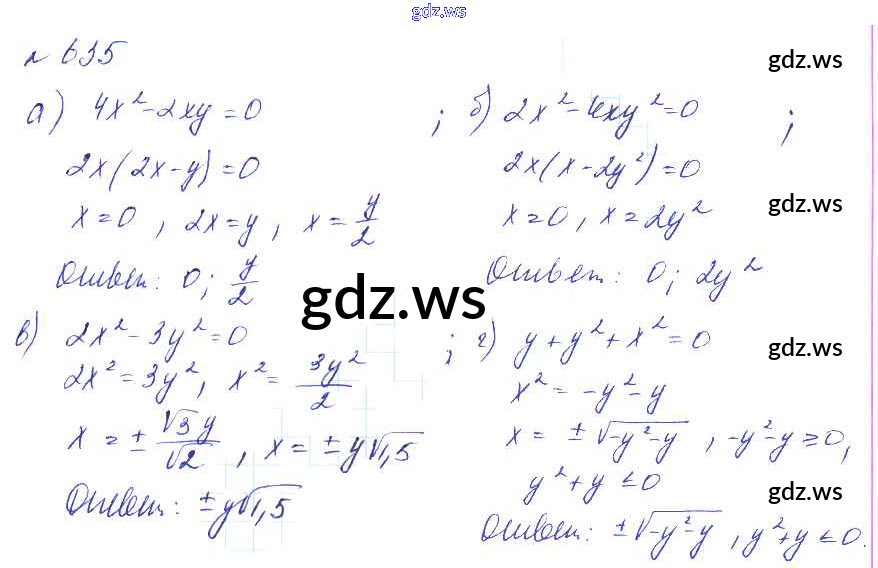 gdz.ws
№ 635
gdz.ws
а) 4x² - 2xy = 0 ; б) 2x² - 4xy² = 0 ;
2x(2x - y) = 0
2x(x - 2y²) = 0
x = 0 , 2x = y , x = y/2
x = 0 , x = 2y²
gdz.ws
Ответ: 0; y/2
Ответ: 0; 2y²
gdz.ws
в) 2x² - 3y² = 0 ; г) y + y² + x² = 0
gdz.ws
2x² = 3y² , x² = 3y²/2
x² = -y² - y
x = ± √3y/√2 , x = ± y√1,5
x = ± √-y² - y , -y² - y ≥ 0,
y² + y ≤ 0
gdz.ws
Ответ: ± y√1,5
Ответ: ± √-y² - y , y² + y ≤ 0.